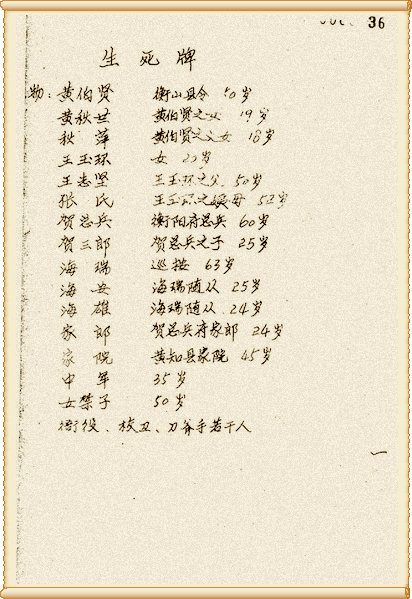 36
生死牌
物：黄伯贤 衡山县令 50岁
黄秋世 黄伯贤之女 19岁
秋萍 黄伯贤之义女 18岁
王玉环 女 20岁
王志坚 王玉环之父 50岁
张氏 王玉环之 母 52岁
贺总兵 衡阳府总兵 60岁
贺三郎 贺总兵之子 25岁
海瑞 巡按 63岁
海安 海瑞随从 25岁
海雄 海瑞随从 24岁
家郎 贺总兵府家郎 24岁
家院 黄知县家院 45岁
中军 35岁
女禁子 50岁
衙役、校卫、刀斧手若干人
一